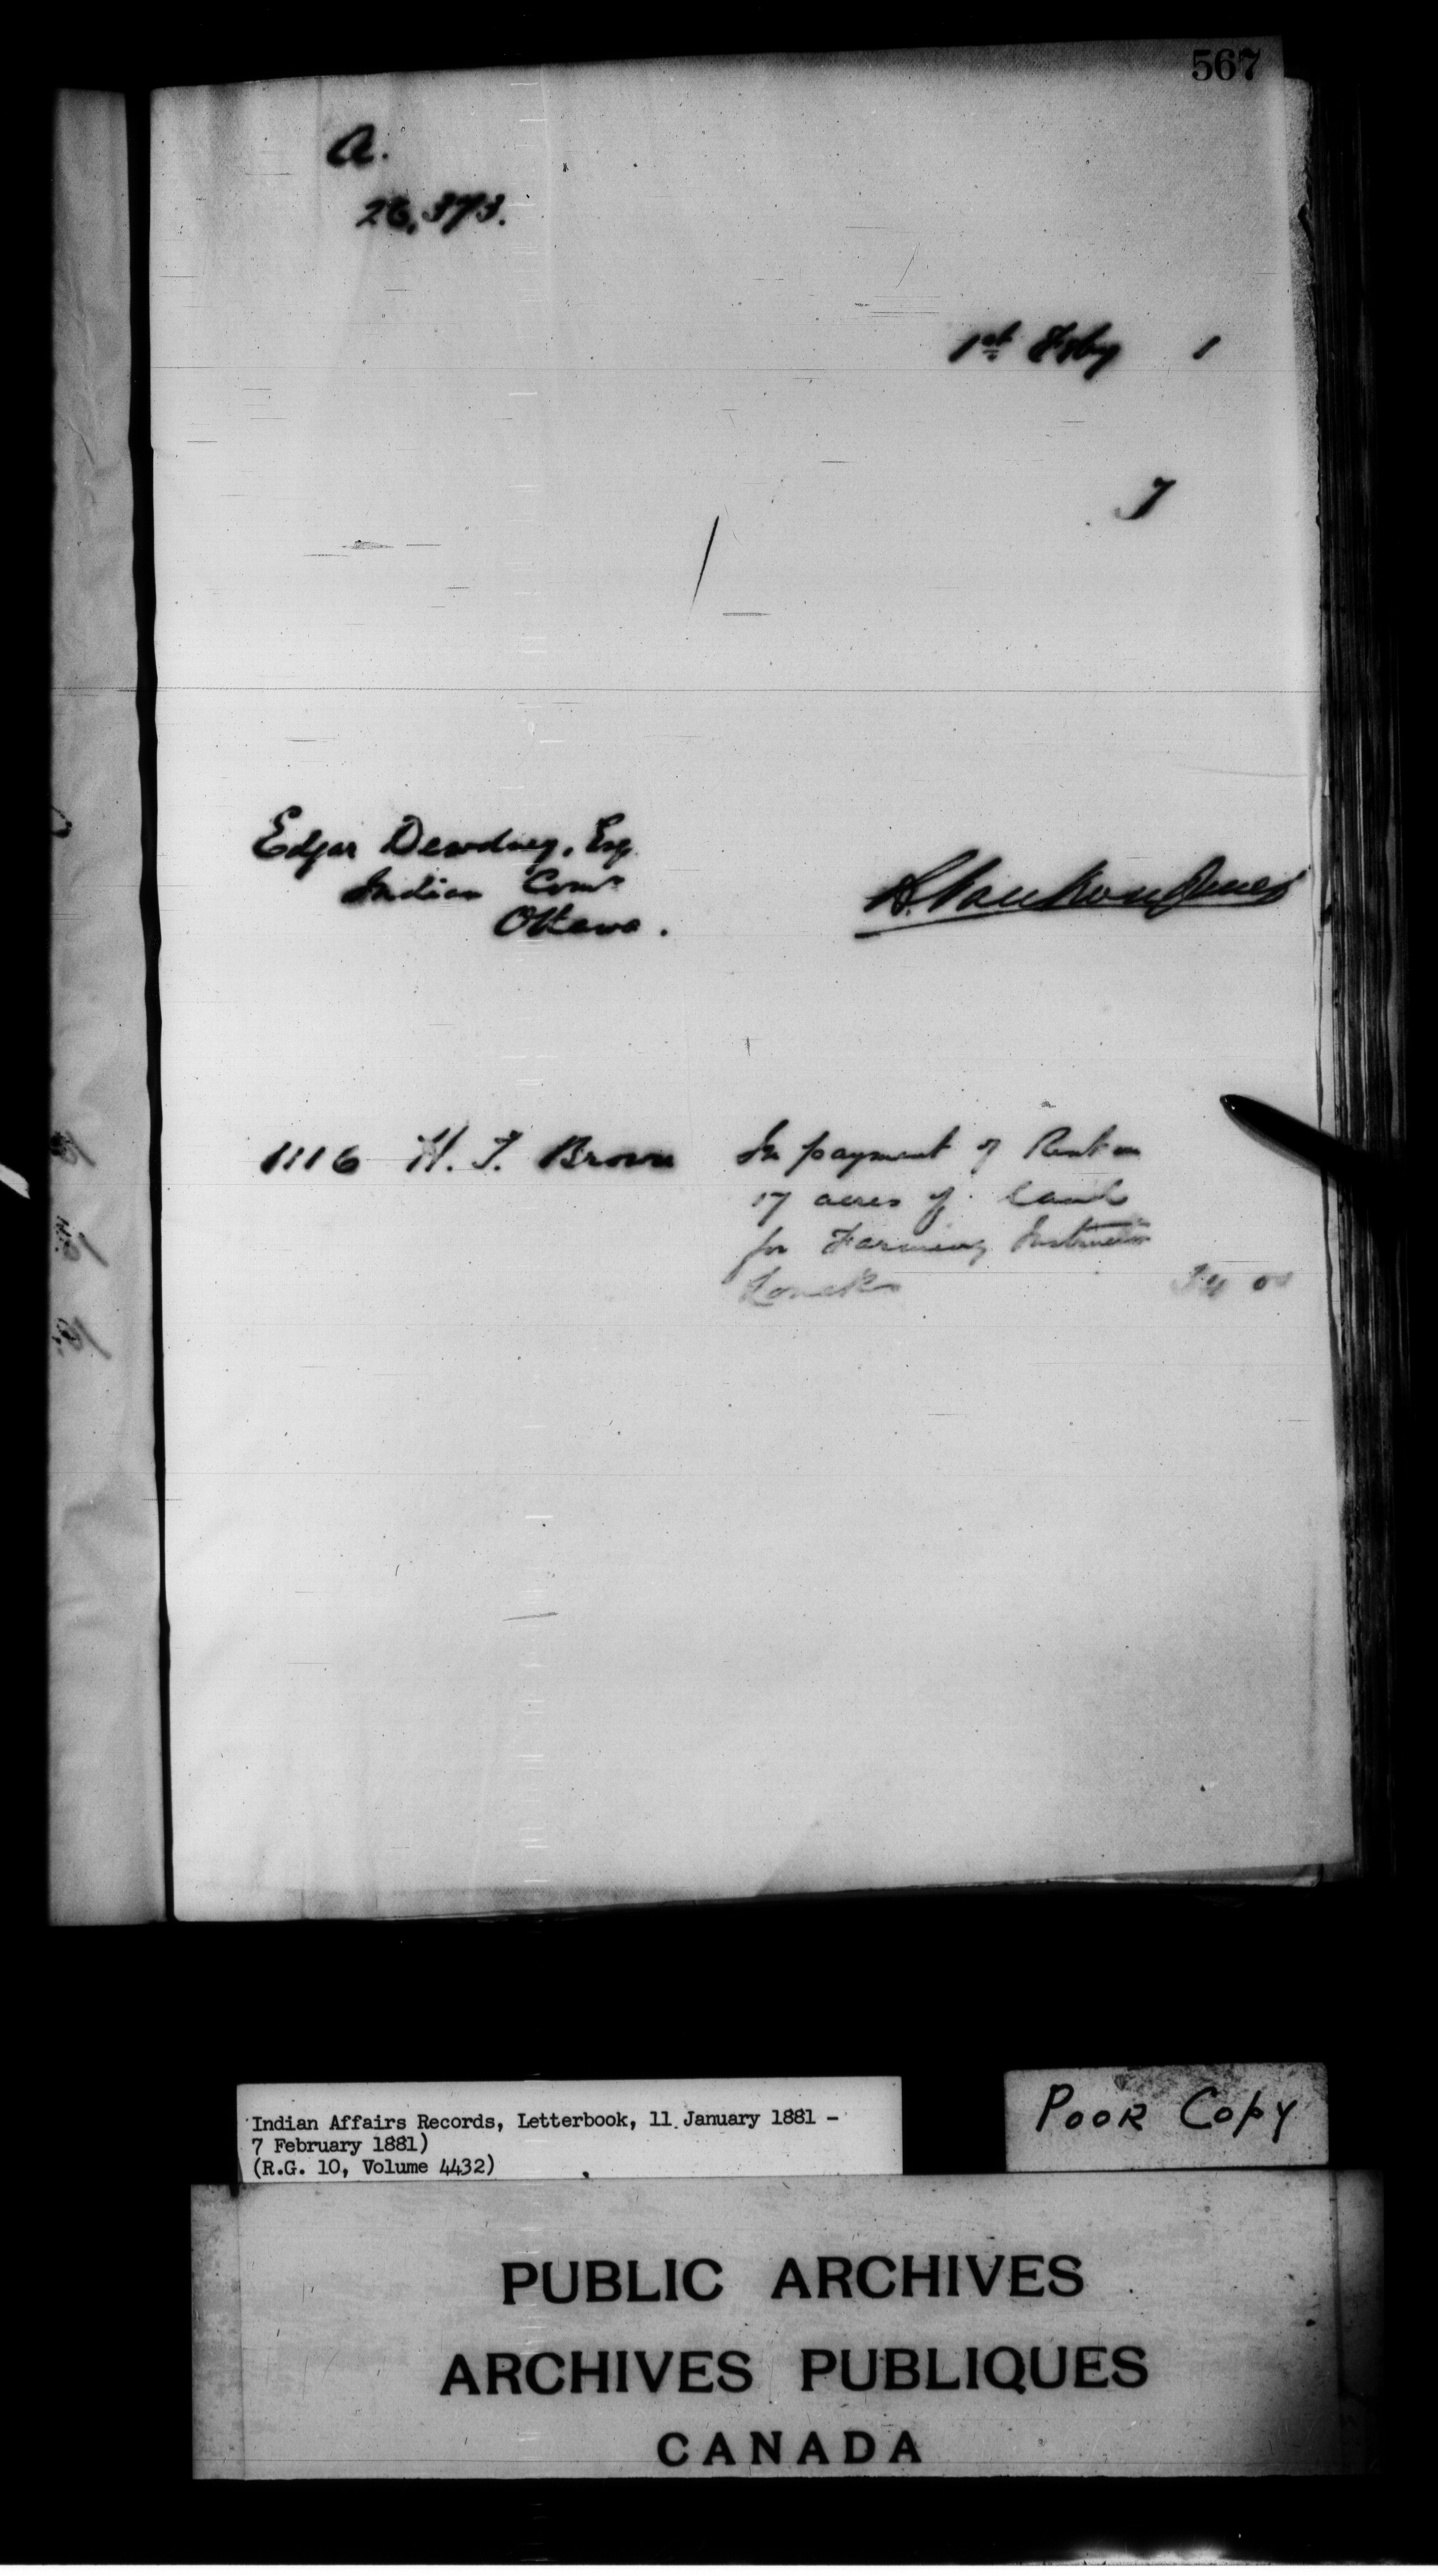 567
A.
26,373.
1st Feby 1
J
Edgar Dewdney, Esq.
Indian Comr
Ottawa.
L. VanKoughnet
1116 H. J. Brown In payment of Rent on
17 acres of land
for Farming Instructor
Loucks 34 00
Indian Affairs Records, Letterbook, 11 January 1881 -
7 February 1881)
(R.G. 10, Volume 4432)
POOR COPY
PUBLIC ARCHIVES
ARCHIVES PUBLIQUES
CANADA